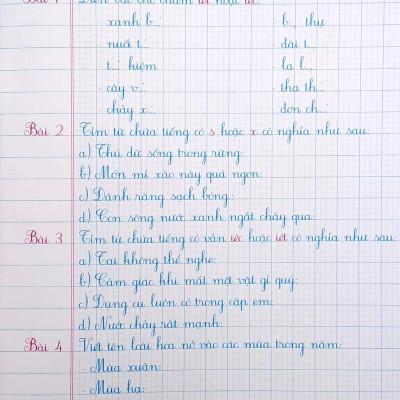 Bài 1 Điền vào chỗ chấm iêt hoặc iêc:
- xanh b...: - b... thự
- nuối t...: - dài t...:
- t...: kiệm - la l...
- cây v...: - tha th...:
- chảy x...: - đơn ch...:
Bài 2 Tìm từ chứa tiếng có s hoặc x có nghĩa như sau:
a) Thú dữ sống trong rừng:
b) Món mì xào này quá ngon:
c) Đánh răng sạch bóng:
d) Con sông nước xanh ngắt chảy qua:
Bài 3 Tìm từ chứa tiếng có vần iếc hoặc iết có nghĩa như sau:
a) Tai không thể nghe:
b) Cảm giác khi mất một vật gì quý:
c) Dụng cụ luôn có trong cặp em:
d) Nước chảy rất mạnh:
Bài 4 Viết tên loài hoa nở vào các mùa trong năm:
- Mùa xuân:
- Mùa hạ: